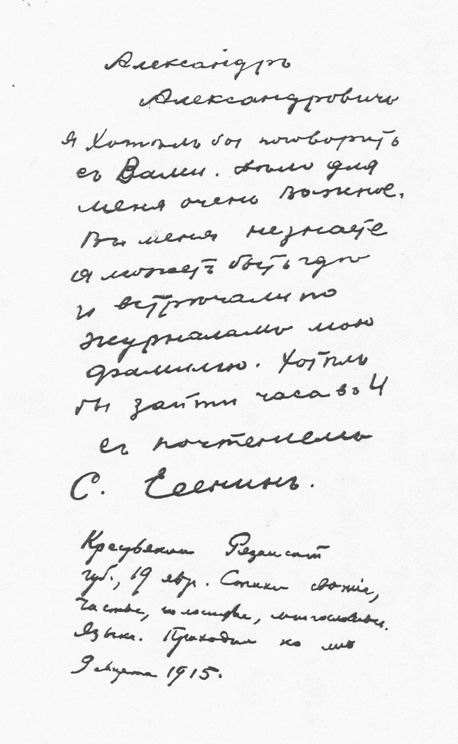 Александръ
Александровичъ
я хотѣлъ бы поговорить
съ Вами. Дѣло для
меня очень важное.
Вы меня не знаете
а можетъ быть гдѣ
и встрѣчали по
журналамъ мою
фамилію. Хотѣлъ
бы зайти часа въ 4
съ почтеніемъ
С. Есенинъ.
Крестьянин Рязанской
губ., 19 лет. Стихи свежие,
чистые, голосистые, многословные.
Язык. Приходил ко мне
9 марта 1915.